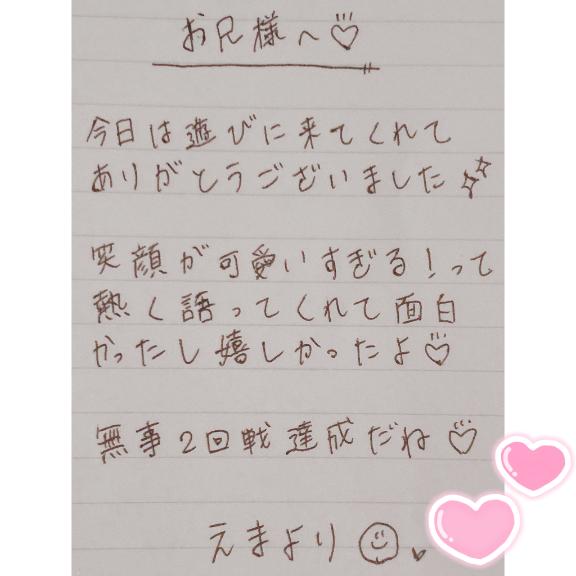 お兄様へ♡
今日は遊びに来てくれて
ありがとうございました
笑顔が可愛いすぎる！って
熱く語ってくれて面白
かったし嬉しかったよ♡
無事2回戦達成だね♡
えまより